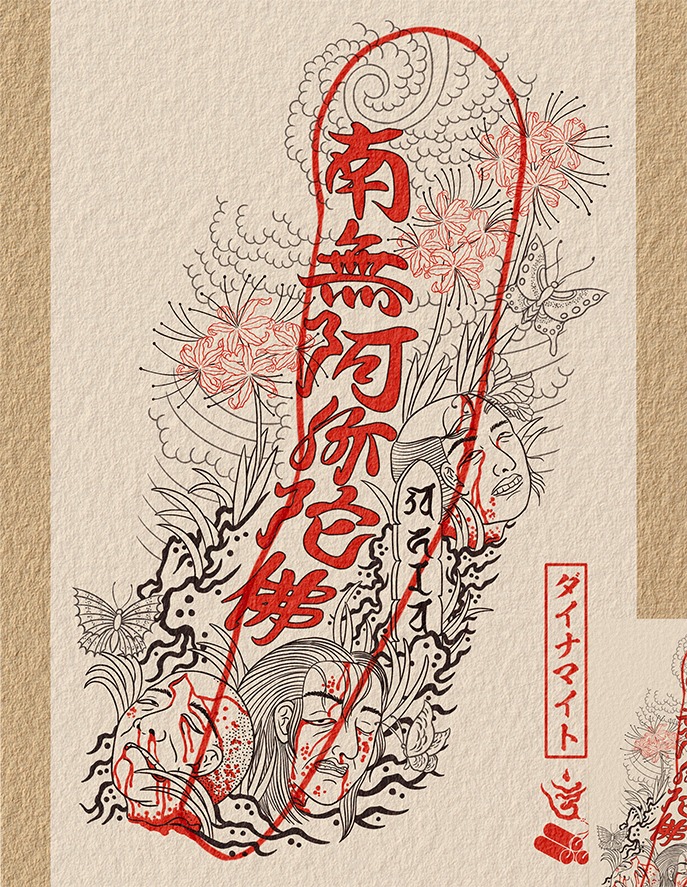 南無阿弥陀佛
ダイナマイト